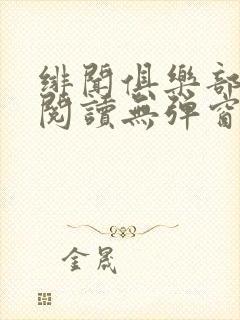 緋聞俱樂部
閱讀無彈窗
金晟